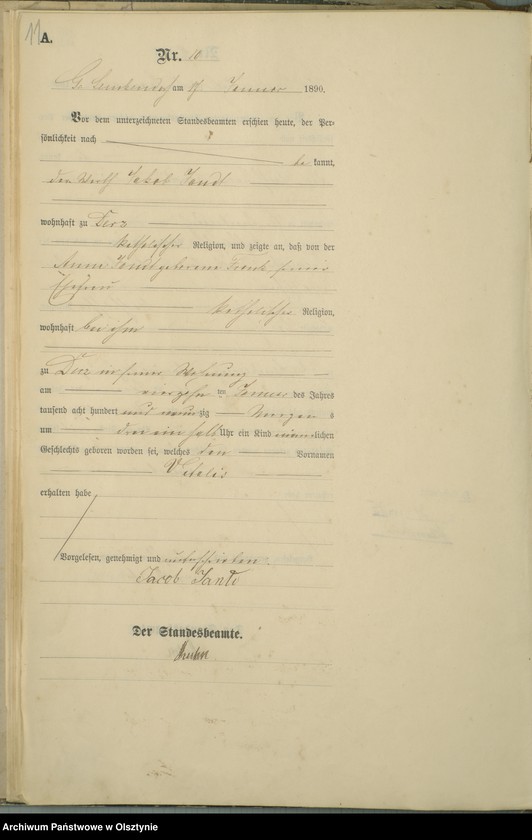 11
A.
Nr. 10
am 17 Januar 1890.
Vor dem unterzeichneten Standesbeamten erschien heute, der Per-
sönlichkeit nach
be kannt,
den Wirth Jakob Jandt
wohnhaft zu Derz
katholischer Religion, und zeigte an, daß von der
Anna Jandt geborene
Ehefrau
katholischer Religion,
wohnhaft bei ihm
zu Derz in seiner Wohnung
am vierzehn ten Januar des Jahres
tausend acht hundert und neunzig Morgens
um drei ein halb Uhr ein Kind männlichen
Geschlechts geboren worden sei, welches den Vornamen
Vitalis
erhalten habe
Vorgelesen, genehmigt und unterschrieben.
Jacob Jandt
Der Standesbeamte.
Archiwum Państwowe w Olsztynie